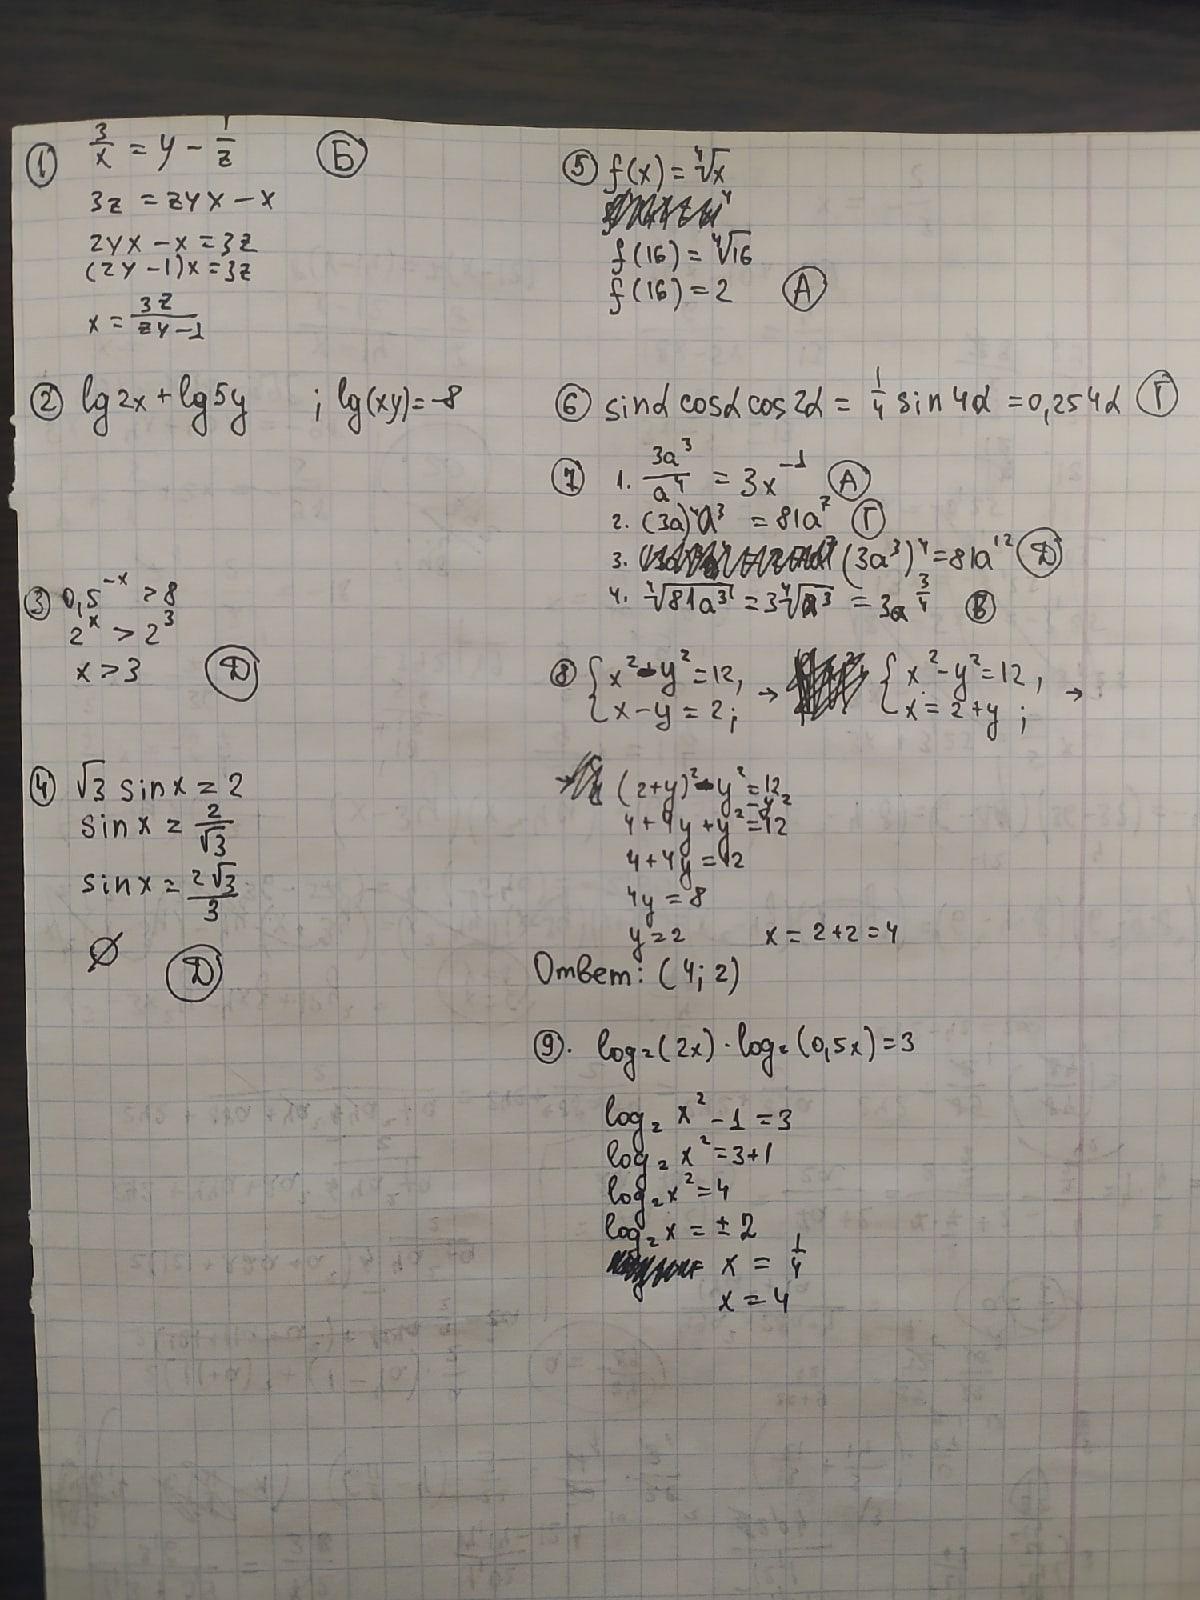 ① 3/x = y - 1/z Б
3z = zyx - x
zyx - x = 3z
(zy - 1)x = 3z
x = 3z/(zy - 1)
② lg2x + lg5y ; lg(xy) = -8
③ 0,5^-x > 8
2^x > 2^3
x > 3 D
④ √3 sinx = 2
sinx = 2/√3
sinx = 2√3/3
∅
D
⑤ f(x) = ⁴√x
f(16) = ⁴√16
f(16) = 2 А
⑥ sinα cosα cos2α = 1/4 sin4α = 0,254α Г
⑦ 1. 3a³/a⁴ = 3x⁻¹ А
2. (3a)⁴a³ = 81a⁷ Г
3. (3a³)⁴ = 81a¹² D
4. ⁴√81a³ = 3⁴√a³ = 3a^3/4 В
⑧ { x² - y² = 12, → { x² - y² = 12, →
x - y = 2; x = 2 + y;
→ (2+y)² - y² = 12
4 + 4y + y² - y² = 12
4 + 4y = 12
4y = 8
y = 2 x = 2+2 = 4
Ответ: (4; 2)
⑨. log₂(2x) · log₂(0,5x) = 3
log₂ x² - 1 = 3
log₂ x² = 3+1
log₂ x² = 4
log₂ x = ± 2
x = 1/4
x = 4